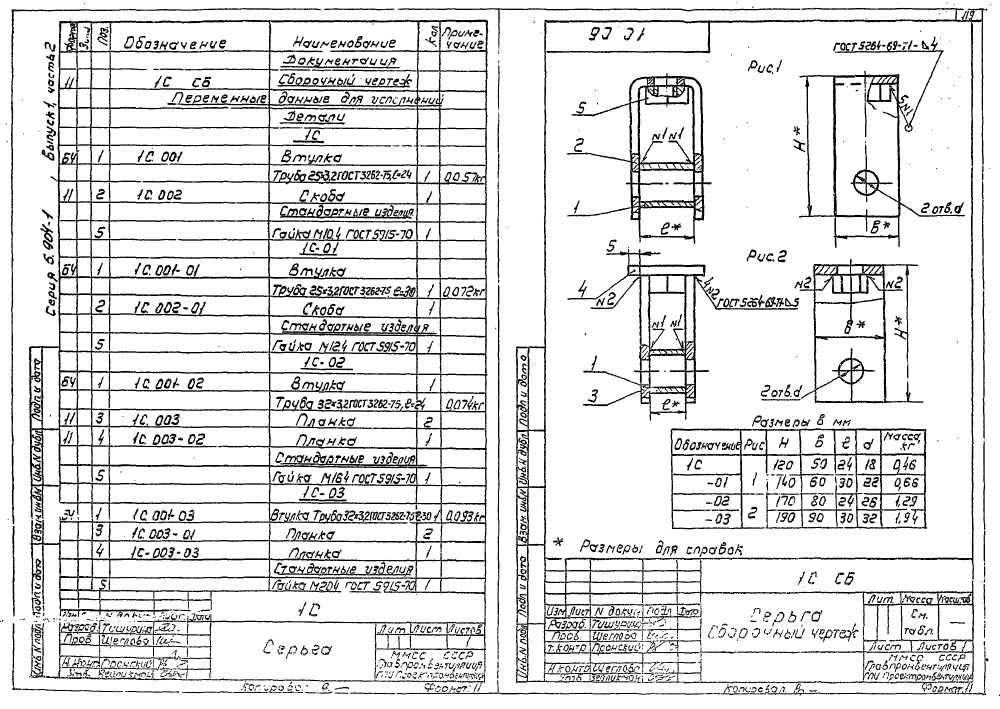 119
Серия 5.904-1, Выпуск 1, часть 2
Формат Зона Поз. Обозначение Наименование Кол Приме-чание
Документация
11 1С СБ Сборочный чертеж
Переменные данные для исполнений
Детали
1С
БЧ 1 1С.001 Втулка
Труба 25×3,2 ГОСТ 3262-75, ℓ=24 1 0,057кг
11 2 1С.002 Скоба 1
Стандартные изделия
5 Гайка М10.4 ГОСТ 5915-70 1
1С-01
БЧ 1 1С.001-01 Втулка
Труба 25×3,2 ГОСТ 3262-75 ℓ=30 1 0,072кг
2 1С.002-01 Скоба 1
Стандартные изделия
5 Гайка М12.4 ГОСТ 5915-70 1
1С-02
БЧ 1 1С.001-02 Втулка 1
Труба 32×3,2 ГОСТ 3262-75, ℓ=24 0,074кг
11 3 1С.003 Планка 2
11 4 1С.003-02 Планка 1
Стандартные изделия
5 Гайка М16.4 ГОСТ 5915-70 1
1С-03
БЧ 1 1С.001-03 Втулка Труба 32×3,2 ГОСТ 3262-75 ℓ=30 1 0,093кг
3 1С.003-01 Планка 2
4 1С-003-03 Планка 1
Стандартные изделия
5 Гайка М20.4 ГОСТ 5915-70 1
1С
Лист Дата
Разраб. Тишурина
Пров. Щеглова
Н.контр Пронский
Утв.
Серьга
Лит Лист Листов
1
ММСС СССР
Главпромвентиляция
ГПИ Проектпромвентиляция
Копировал Формат 11
Инв.N подл. Подп и дата Взам инв.N Инв.N дубл. Подп и дата
1С СБ
Рис.1
ГОСТ 5264-69-Т1-⊿4
5 N1
5
2
1
N1 N1
ℓ*
H*
2 отв. d
В*
Рис.2
5
4
N2
4 N2
ГОСТ 5264-69-Т1-⊿5
N1 N1
1
3
ℓ*
N2 N2
В*
H*
2 отв. d
Размеры в мм
Обозначение Рис H В ℓ d Масса, кг
1С 1 120 50 24 18 0,46
-01 140 60 30 22 0,66
-02 2 170 80 24 26 1,29
-03 190 90 30 32 1,94
* Размеры для справок
Инв.N подл. Подп и дата Взам инв.N Инв.N дубл. Подп и дата
1С СБ
Изм Лист N докум. Подп Дата
Разраб. Тишурина
Пров. Щеглова
Т.контр Пронский
Н.контр Щеглова
Утв.
Серьга
Сборочный чертеж
Лит. Масса Масштаб
См. табл. —
Лист Листов 1
ММСС СССР
Главпромвентиляция
ГПИ Проектпромвентиляция
Копировал Формат 11